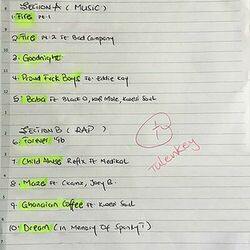 SECTION A (MUSIC)
1. Fire pt. 1
2. Fire pt. 2 ft. Bad Company
3. Goodnight
4. Proud Fvck Boys ft. Eddie Kay
5. Baba ft. Black D, Kofi Mole, Kweku Soul
SECTION B (RAP)
6. Forever '96
7. Child Abuse Refix ft. Medikal
8. Maze ft. Ckanz, Joey B.
9. Ghanaian Coffee ft. Kweku Soul
10. Dream (In Memory Of Sparky T)
10
Tulenkey